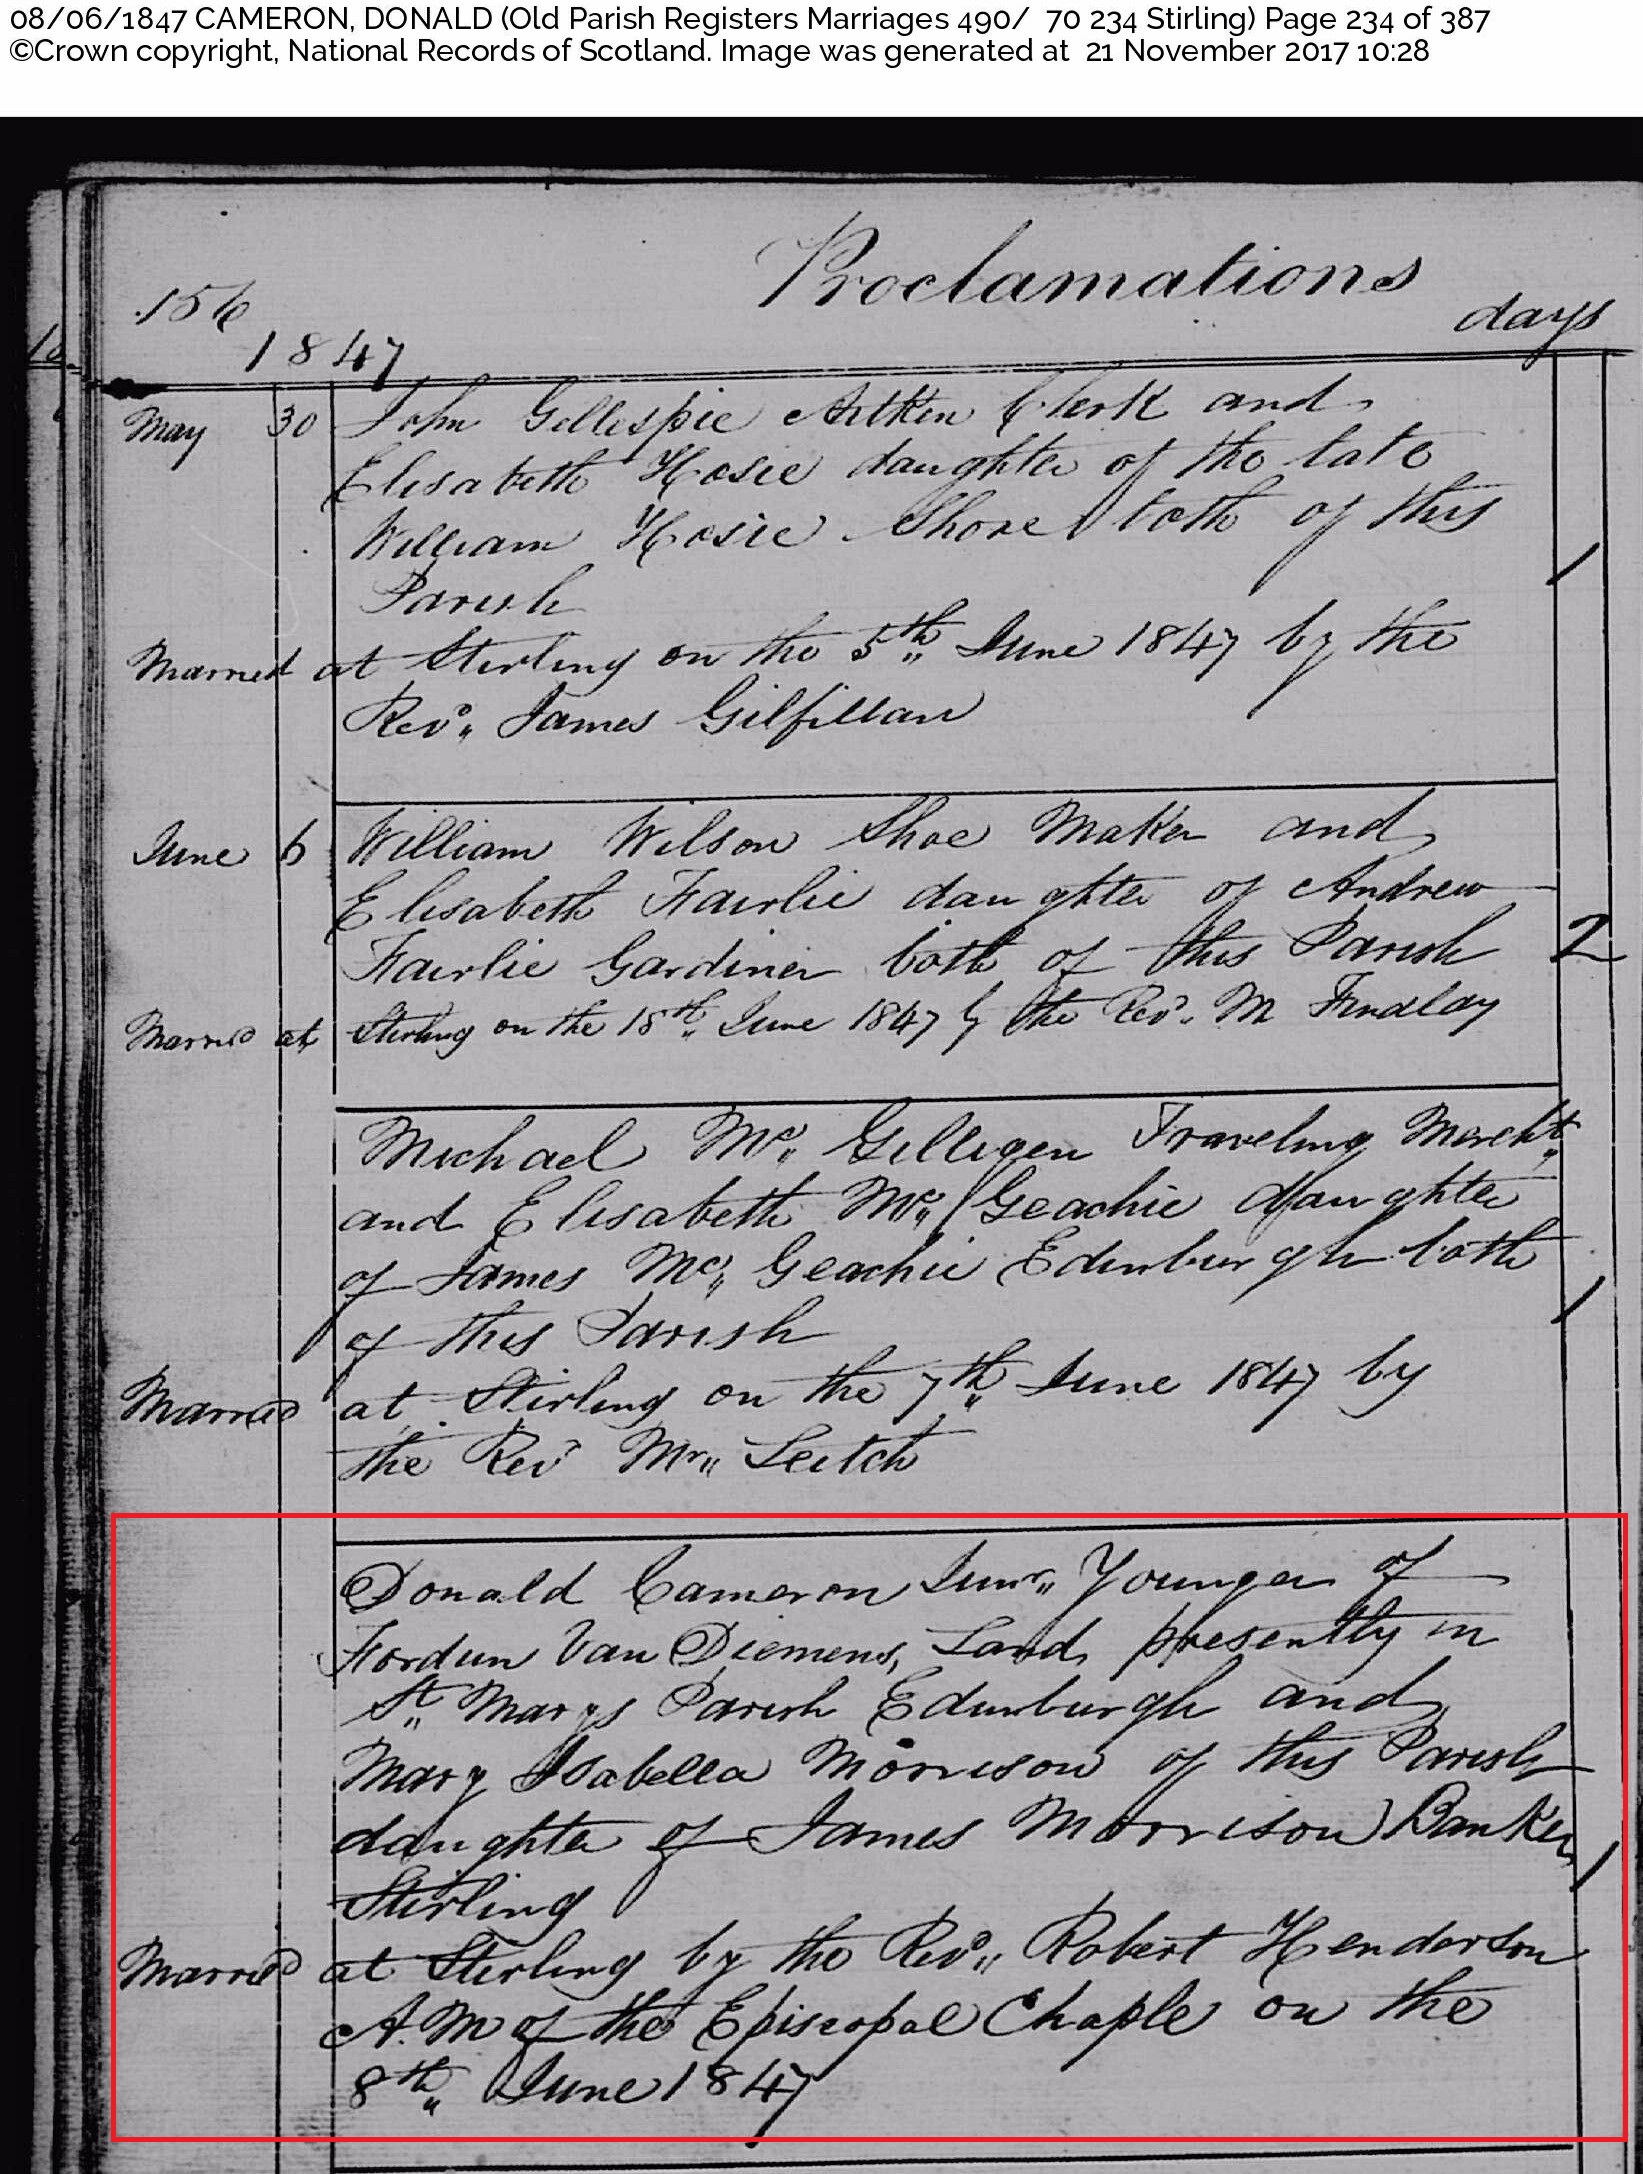 08/06/1847 CAMERON, DONALD (Old Parish Registers Marriages 490/ 70 234 Stirling) Page 234 of 387
©Crown copyright, National Records of Scotland. Image was generated at 21 November 2017 10:28
Proclamations
156
days
1847
May 30 John Gillespie Aitken Clerk and
Elisabeth Hosie daughter of the late
William Hosie Shore both of this
Parish 1
Married at Stirling on the 5th June 1847 by the
Revd. James Gilfillan
June 6 William Wilson Shoe Maker and
Elisabeth Fairlie daughter of Andrew
Fairlie Gardiner both of this Parish 2
Married at Stirling on the 18th June 1847 by the Revd. M Findlay
Michael Mc Gilligen Traveling Marcht
and Elisabeth Mc Geachie daughter
of James Mc Geachie Edinburgh both
of this Parish 1
Married at Stirling on the 7th June 1847 by
the Revd Mr Leitch
Donald Cameron Junr Younger of
Fordun Van Diemens Land presently in
St Marys Parish Edinburgh and
Mary Isabella Morrison of this Parish
daughter of James Morrison Banker 1
Stirling
Married at Stirling by the Revd. Robert Henderson
A.M of the Episcopal Chaple on the
8th June 1847